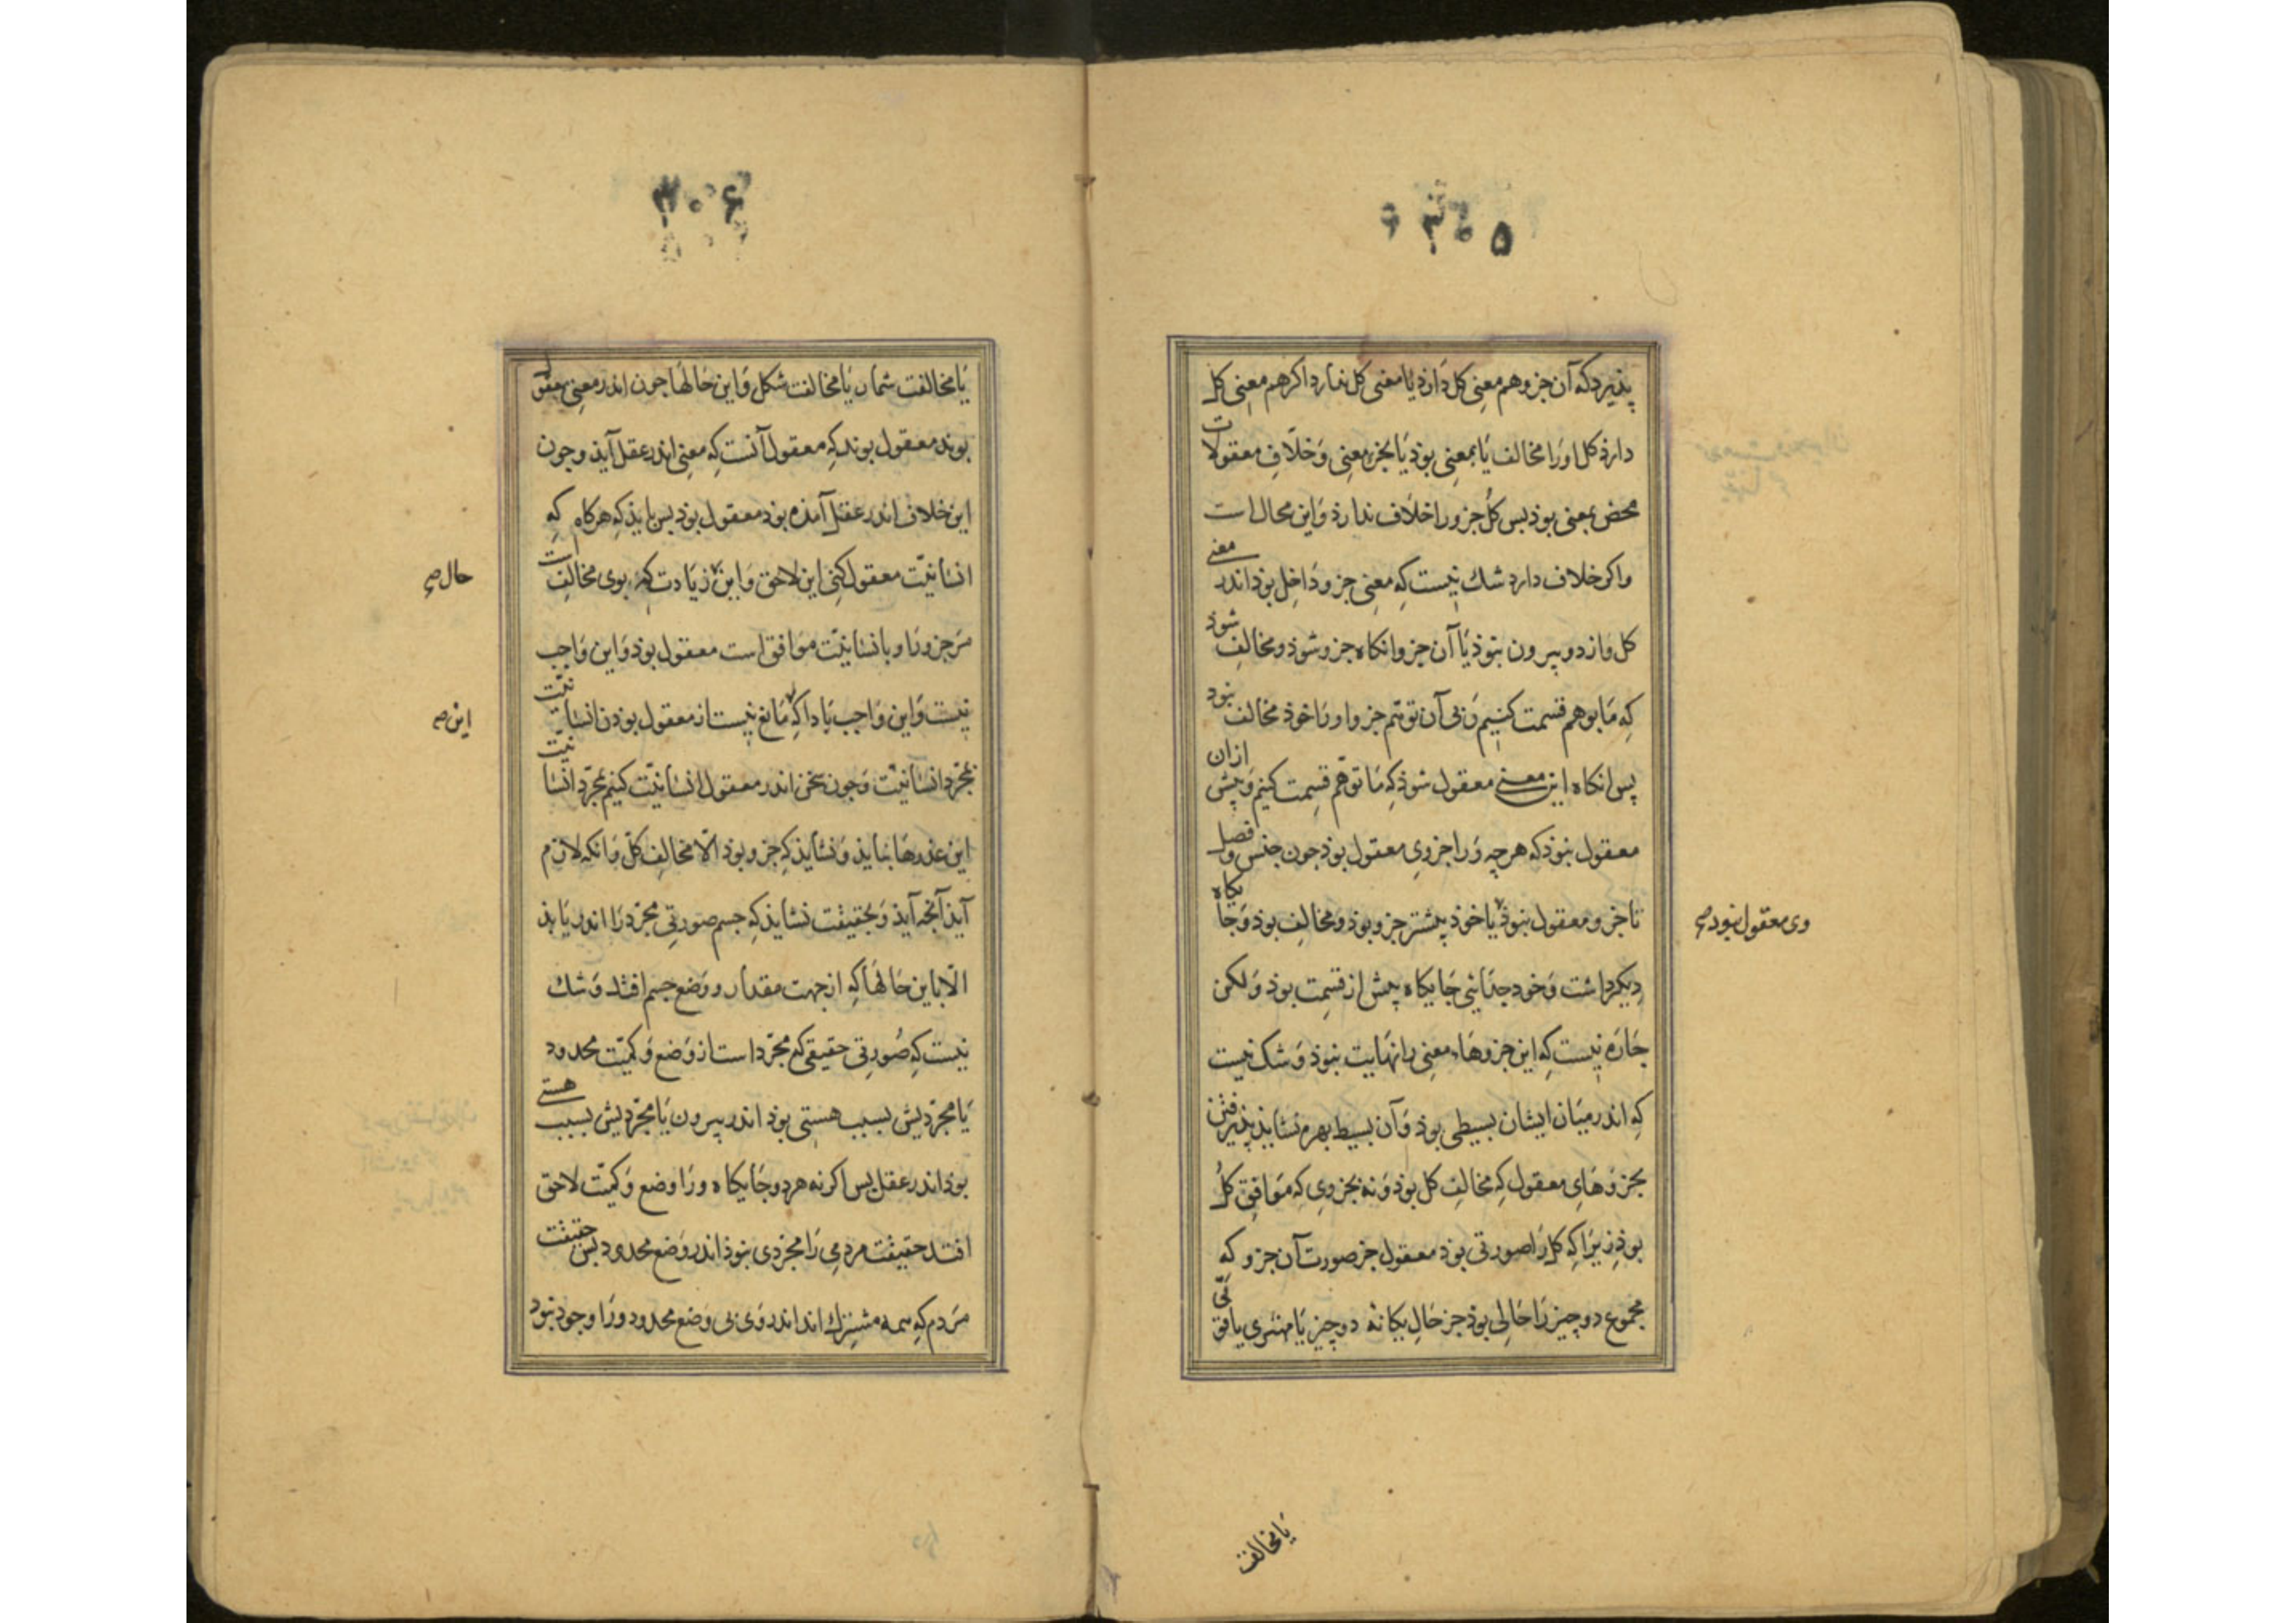 ۳۰۵
پذیرد که آن جزو هم معنی کل دارذ یا معنی کل ندارد اکر هم معنی کل
دارذ کل اورا مخالف یا بمعنی بوذ یا بجز معنی وَخلاف معقولات
محض بمعنی بوذ بس کل جزو را خلاف ندارذ وَاین محال است
واکر خلاف دارد شك نیست که معنی جزو دَاخل بوذ اندر معنی
کل وَازو بیرون نبوذ یا آن جزو انکاه جزو شوذ ومخالف شوذ
که مَا بوهم قسمت کنیم وَبی آن توهّم جزو اورَا خوذ مخالف نبود
پس انکاه این معنی معقول شوذ که مَا توهّم قسمت کنیم وَپیش ازان
معقول نبوذ که هرچه وَرا جزوی معقول بوذ جون جنس وفصل
تا جزو معقول نبوذ یا خوذ پیشتر جزو بوذ ومخالف بوذ وَجایکاه
وی معقول نبود صح
دیکر داشت وَخود جدَائی جَایکاه پیش از قسمت بوذ وَلکن
جَارَه نیست که این جزوهاء معنی را نهایت نبوذ وَشک نیست
که اندر میَان ایشان بسیطی بوذ وَآن بسیط بهره نشایذ پذیرفتن
بجزوهَایِ معقول که مخالف کل بوذ وَنه بجزوی که مَوافق کل
بوذ زیرَا که کل رَا صورتی بوذ معقول جز صورت آن جزو که
مجموع دو چیز رَا حَالی بوذ جز حَالِ یکانه دو چیز یَا مهتری یا قوّتی
یَا مخالفت
۳۰۶
یَا مخالفت شمار یَا مخالفت شکل وَاین حَالهَا جون اندر معنی معقول
بوند معقول بوند که معقول آنست که معنی اندر عقل آیذ وجون
این خلاف اندر عقل آمذه بود معقول بوذ بس بایذ که هرکاه که
انسَانیّت معقول کنی این لاحق وَاین زیَادت که بوی مخالف است
حال صح
مَرجزو رَا وبانسانیّت موَافق است معقول بوذ وَاین وَاجب
نیست وَاین وَاجب بَادا که مَانع نیست از معقول بوذن انسانیّت
این صح
بمجرّد انسَانیّت وَجون سخن اندر معقول انسَانیّت کنیم بمجرّد انسَانیّت
این عذرهَا نیایذ وَنشایذ که جزو بوذ الّا مخالف کلّ وَانکه لازم
آیذ آنجه آیذ وَبحقیقت نشایذ که جسم صورتی مجرّد رَا اندر یَابذ
الّا باین حَالهَا که از جهت مقدار ووَضع جسم افتد وَشك
نیست که صُورتی حقیقی که مجرّد است از وَضع وَکمیّت محدود
یَا مجرّدیش بسبب هستی بوذ اندر بیرون یَا مجرّدیش بسبب هستی
بوذ اندر عقل بس اکر نه هر دو جَایکاه ورَا وضع وَکمیّت لاحق
افتد حقیقت مردمی رَا مجرّدی نبوذ اندر وَضع محدود بس حقیقت
مَردم که همه مشترك اند اندر وَی بی وَضع محدود ورَا وجود نبود